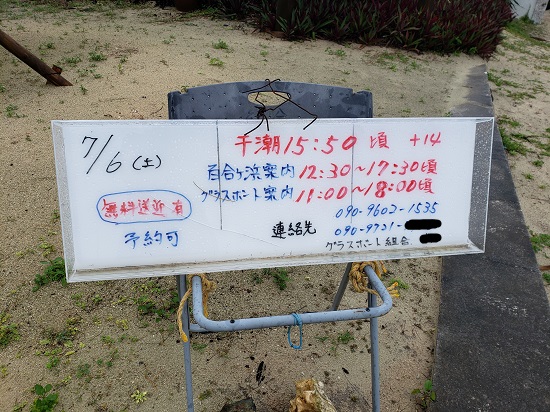 7/6(土)
干潮15:50頃 +14
百合ヶ浜案内 12:30〜17:30頃
グラスボート案内 11:00〜18:00頃
無料送迎 有
予約可
連絡先
090-9602-1535
090-9721-
グラスボート組合